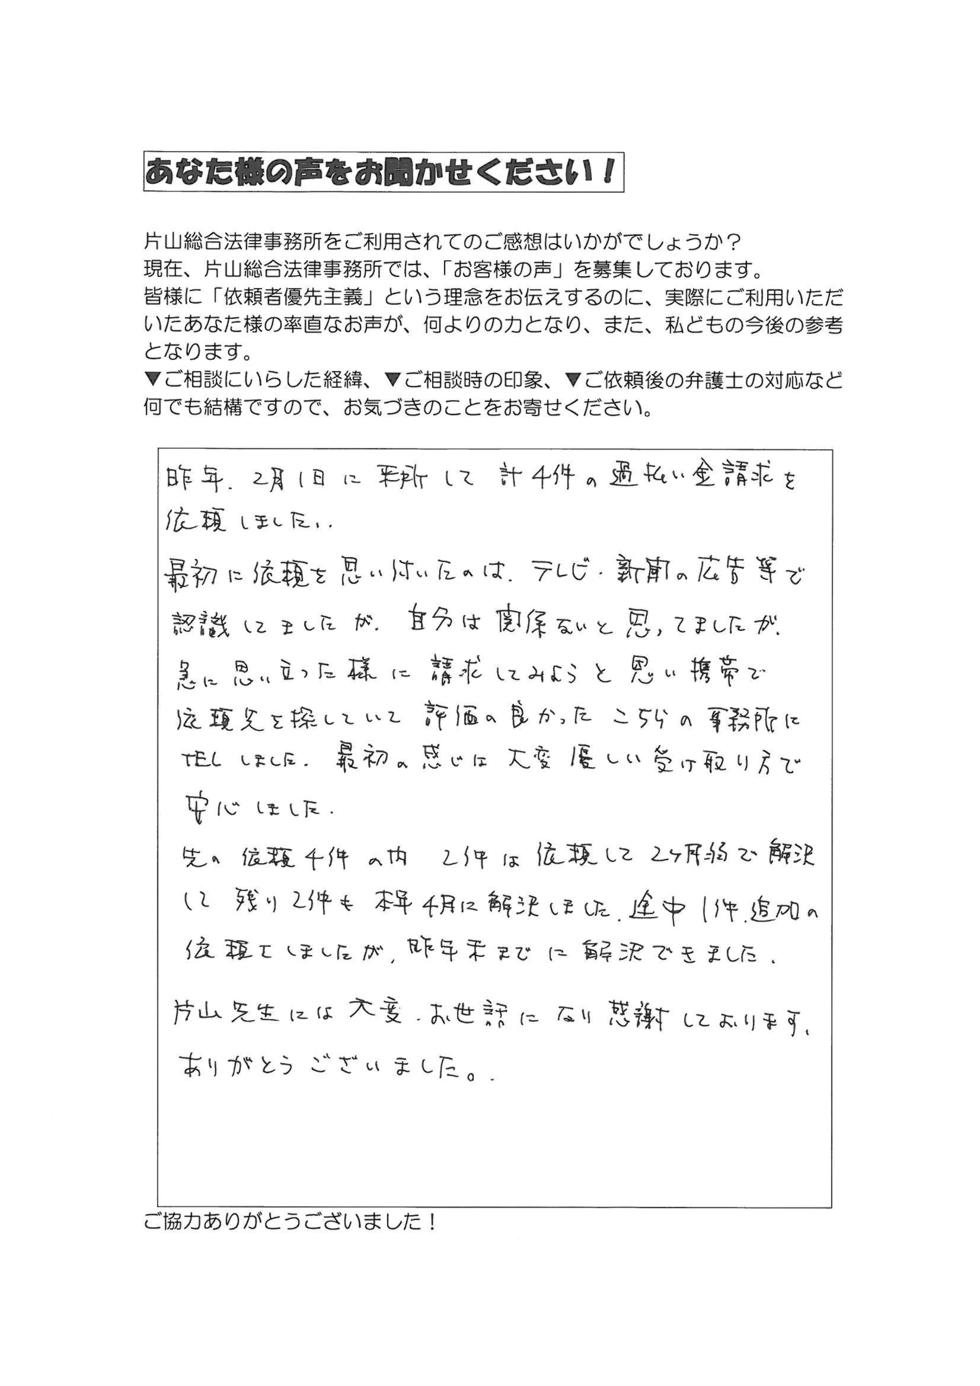 あなた様の声をお聞かせください！
片山総合法律事務所をご利用されてのご感想はいかがでしょうか？
現在、片山総合法律事務所では、「お客様の声」を募集しております。
皆様に「依頼者優先主義」という理念をお伝えするのに、実際にご利用いただ
いたあなた様の率直なお声が、何よりの力となり、また、私どもの今後の参考
となります。
▼ご相談にいらした経緯、▼ご相談時の印象、▼ご依頼後の弁護士の対応など
何でも結構ですので、お気づきのことをお寄せください。
昨年、2月1日に来所して計4件の過払い金請求を
依頼しました。
最初に依頼を思い付いたのは、テレビ・新聞の広告等で
認識してましたが、自分は関係ないと思ってましたが、
急に思い立った様に請求してみようと思い携帯で
依頼先を探していて評価の良かったこちらの事務所に
TELしました。最初の感じは大変優しい受け取り方で
安心しました。
先の依頼4件の内 2件は依頼して2ヶ月弱で解決
して残り2件も本年4月に解決しました。途中1件、追加の
依頼てしましたが、昨年末までに解決できました。
片山先生には大変、お世話になり感謝しております、
ありがとうございました。.
ご協力ありがとうございました！